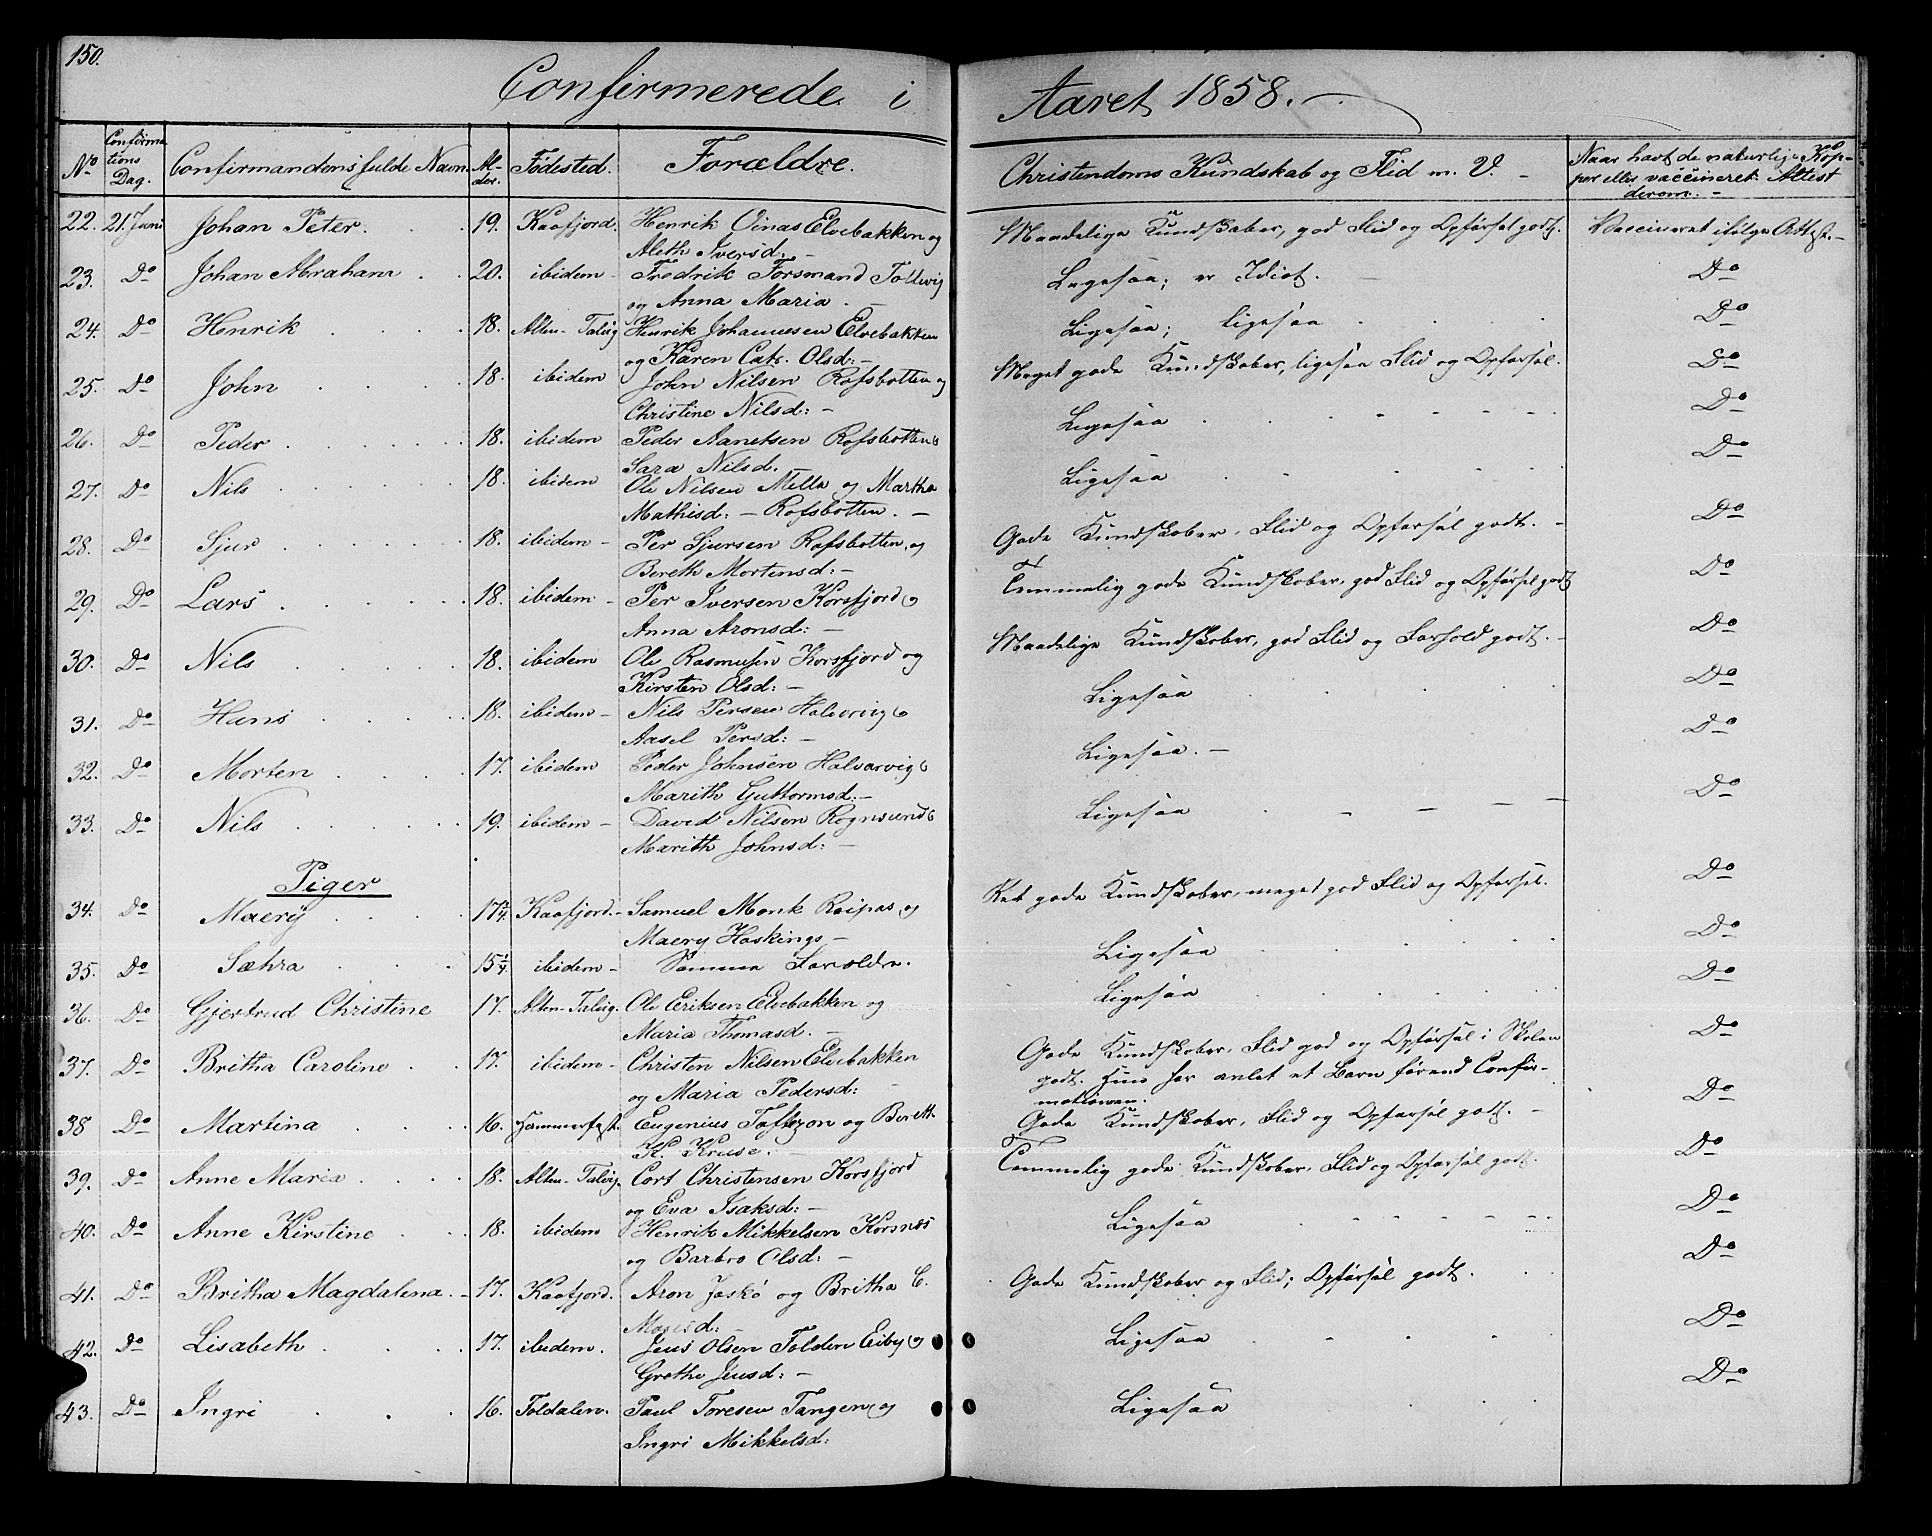 150.
Confirmerede i Aaret 1858.
No Confirmations Dag. Confirmandens fulde Navn. Alder. Fødested. Forældre. Christendoms Kundskab og Flid m. V. Naar havt de naturlige Kopper eller vaccineret. Attest derom.
22. 21. Juni Johan Peter. 19. Kaafjord. Henrik Oinas Elvebakken og Maadelige Kundskaber, god Flid og Opførsel godt. Vaccineret ifølge Attest.
Aleth Iversd:
23. Do Johan Abraham 20. ibidem Fredrik Forsmand Toldvig Ligesaa; er Idiot. Do
og Anna Maria.
24. Do Henrik 18. Alten-Talvig Henrik Johannesen Elvebakken Ligesaa; ligesaa Do
og Karen Cat. Olsd:
25. Do John 18. ibidem John Nilsen Rafsbotten og Meget gode Kundskaber, ligesaa Flid og Opførsel. Do
Christine Nilsd:
26. Do Peder 18. ibidem Peder Aanetsen Rafsbotten o Ligesaa Do
Sara Nilsd.
27. Do Nils 18. ibidem Ole Nilsen Mella og Martha Ligesaa Do
Mathisd: - Rafsbotten.
28. Do Sjur 18. ibidem Per Sjursen Rafsbotten, og Gode Kundskaber, Flid og Opførsel godt. Do
Bereth Mortensd:
29. Do Lars 18. ibidem Per Iversen Korsfjord o Temmelig gode Kundskaber, god Flid og Opførsel godt Do
Anna Aronsd:
30. Do Nils 18. ibidem Ole Rasmusen Korsfjord og Maadelige Kundskaber, god Flid og Forhold godt. Do
Kirsten Olsd:
31. Do Hans 18. ibidem Nils Persen Halvorvig o Ligesaa Do
Aasel Persd:
32. Do Morten 17. ibidem Peder Johnsen Halvarvig o Ligesaa. Do
Marith Guttormsd:
33. Do Nils 19. ibidem David Nilsen Rognsund o Ligesaa Do
Marith Johnsd:
Piger
34. Do Maery 17¾. Kaafjord. Samuel Monk Raipas og Ret gode Kundskaber, meget god Flid og Opførsel. Do
Maery Haskings
35. Do Sæhra 15¼. ibidem Samme Forældre. Ligesaa Do
36. Do Gjertrud Christine 17. Alten-Talvig. Ole Eriksen Elvebakken og Ligesaa Do
Maria Thomasd.
37. Do Britha Caroline 17. ibidem Christen Nilsen Elvebakken Gode Kundskaber, Flid god og Opførsel i Skolen Do
og Maria Pedersd: godt. Hun har avlet et Barn førend Confirmationen.
38 Do Martina 16. Hammerfest. Eugenius Taftezon og Bereth Gode Kundskaber, Flid og Opførsel godt. Do
K. Kruse.
39. Do Anne Maria 18. Alten-Talvig. Cort Christensen Korsfjord Temmelig gode Kundskaber, Flid og Opførsel godt. Do
og Eva Isaksd:
40. Do Anne Kirstine 18. ibidem Henrik Mikkelsen Korsnæs Ligesaa Do
og Barbro Olsd:
41. Do Britha Magdalena. 17. Kaafjord. Aron Jaskø og Britha C. Gode Kundskaber og Flid; Opførsel godt. Do
Mosesd:
42. Do Lisabeth 17. ibidem. Jens Olsen Tolden Eiby o Ligesaa Do
Grethe Jensd:
43. Do Ingri 16. Toldalen. Paul Toresen Tangen og Ligesaa Do
Ingri Mikkelsd: